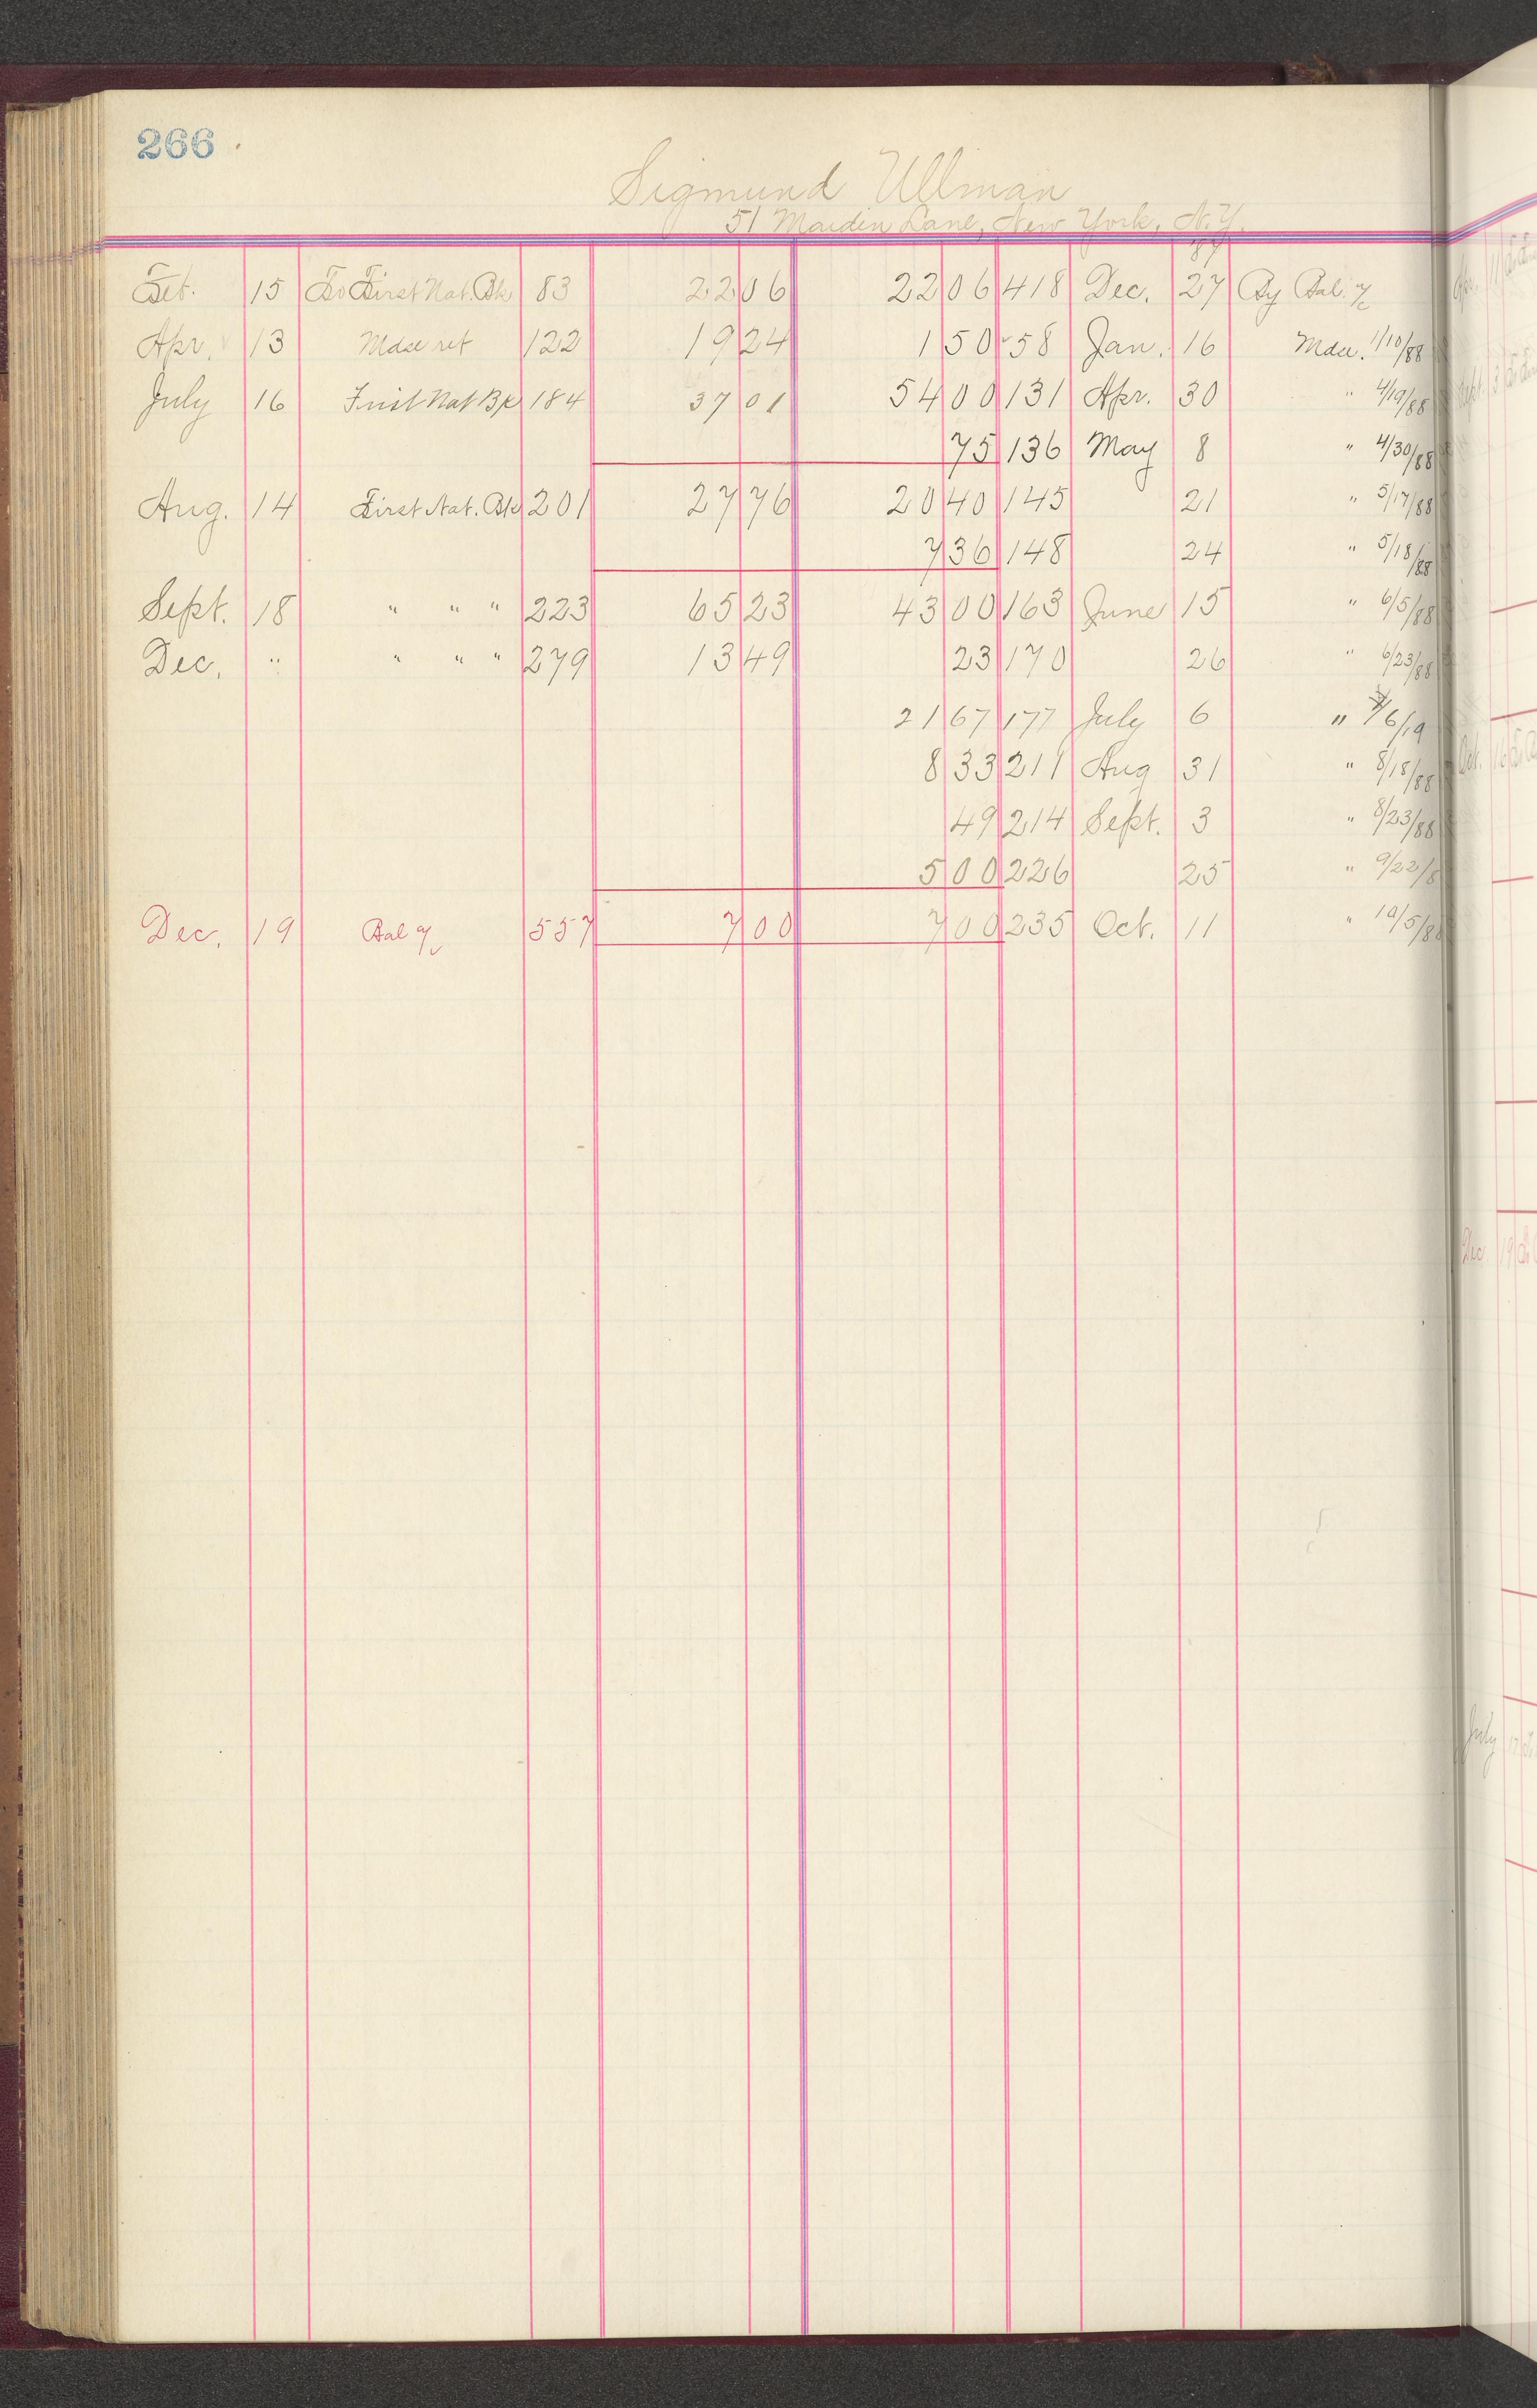 266
Sigmund Ullman
51 Maiden Lane, New York, N.Y.
87
Feb. 15 To First Nat. Bk 83 22 06 22 06 418 Dec. 27 By Bal. a/c
Apr. 13 Mdse ret 122 19 24 1 50 58 Jan. 16 Mdse. 1/10/88
July 16 First Nat Bk 184 37 01 54 00 131 Apr. 30 " 4/19/88
75 136 May 8 " 4/30/88
Aug. 14 First Nat. Bk 201 27 76 20 40 145 21 " 5/17/88
7 36 148 24 " 5/18/88
Sept. 18 " " " 223 65 23 43 00 163 June 15 " 6/5/88
Dec. " " " " 279 13 49 23 170 26 " 6/23/88
21 67 177 July 6 " 6/19
8 33 211 Aug 31 " 8/18/88
49 214 Sept. 3 " 8/23/88
5 00 226 25 " 9/22/8
Dec. 19 Bal a/c 557 7 00 7 00 235 Oct. 11 " 10/5/88